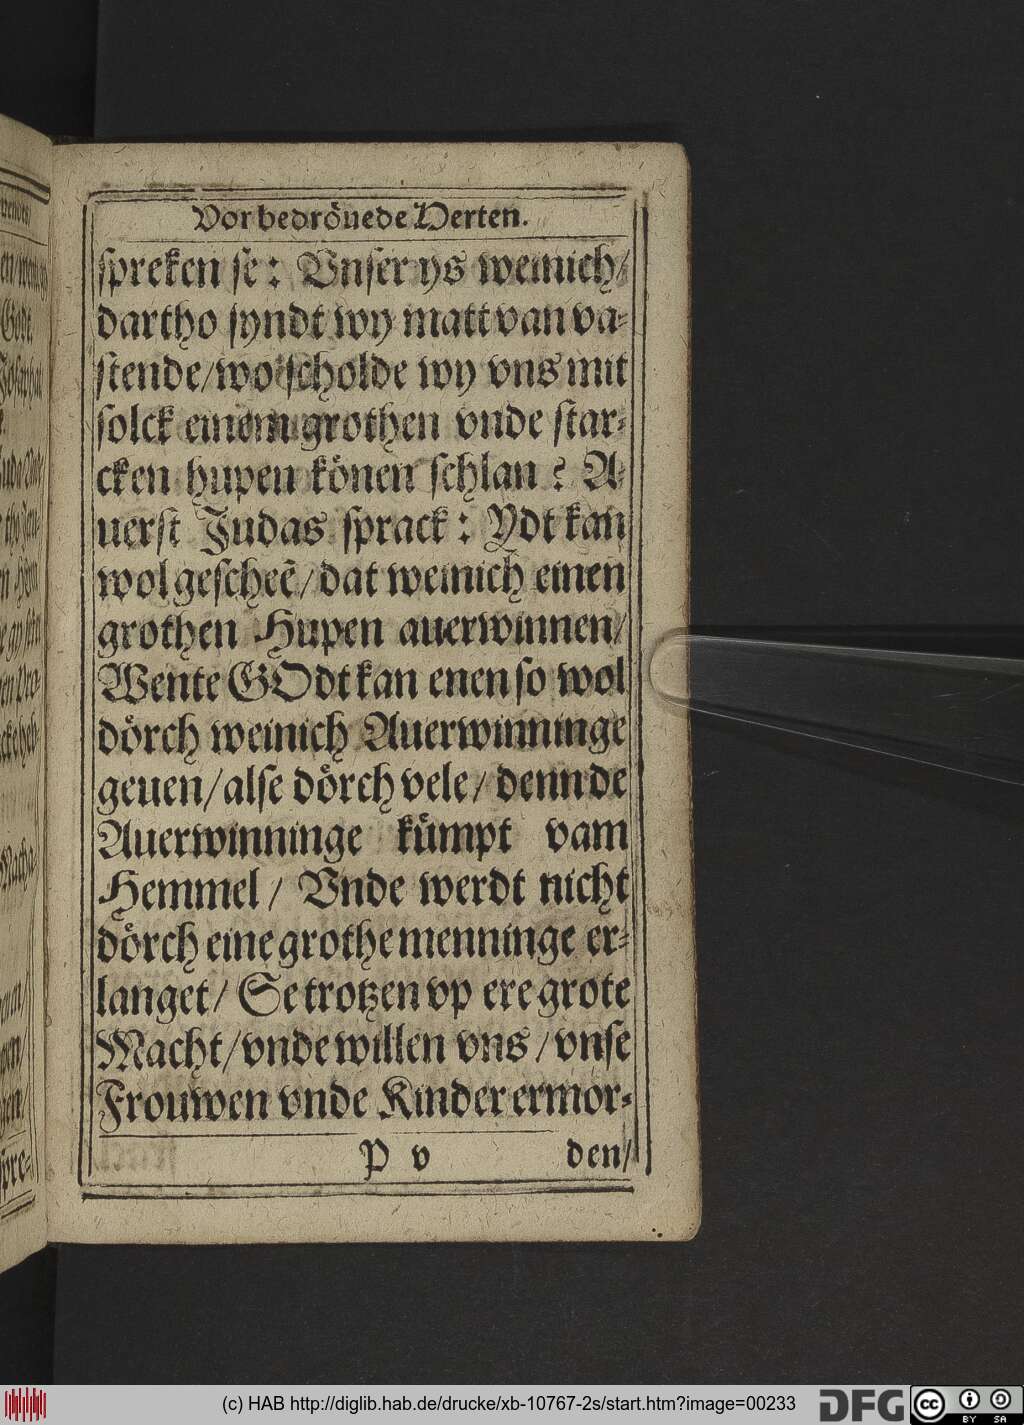 Vor bedröuede Herten.
spreken se: Vnser ys weinich/
dartho syndt wy matt van va-
stende/wo scholde wy vns mit
solck einem grothen vnde star-
cken hupen könen schlan? A-
uerst Judas sprack: Ydt kan
wol gescheẽ/dat weinich einen
grothen Hupen auerwinnen/
Wente GOdt kan enen so wol
dörch weinich Auerwinninge
geuen/alse dörch vele/denn de
Auerwinninge kümpt vam
Hemmel/ Vnde werdt nicht
dörch eine grothe menninge er-
langet/ Se trotzen vp ere grote
Macht/vnde willen vns/vnse
Frouwen vnde Kinder ermor-
P v den/
(c) HAB http://diglib.hab.de/drucke/xb-10767-2s/start.htm?image=00233
DFG
cc BY SA